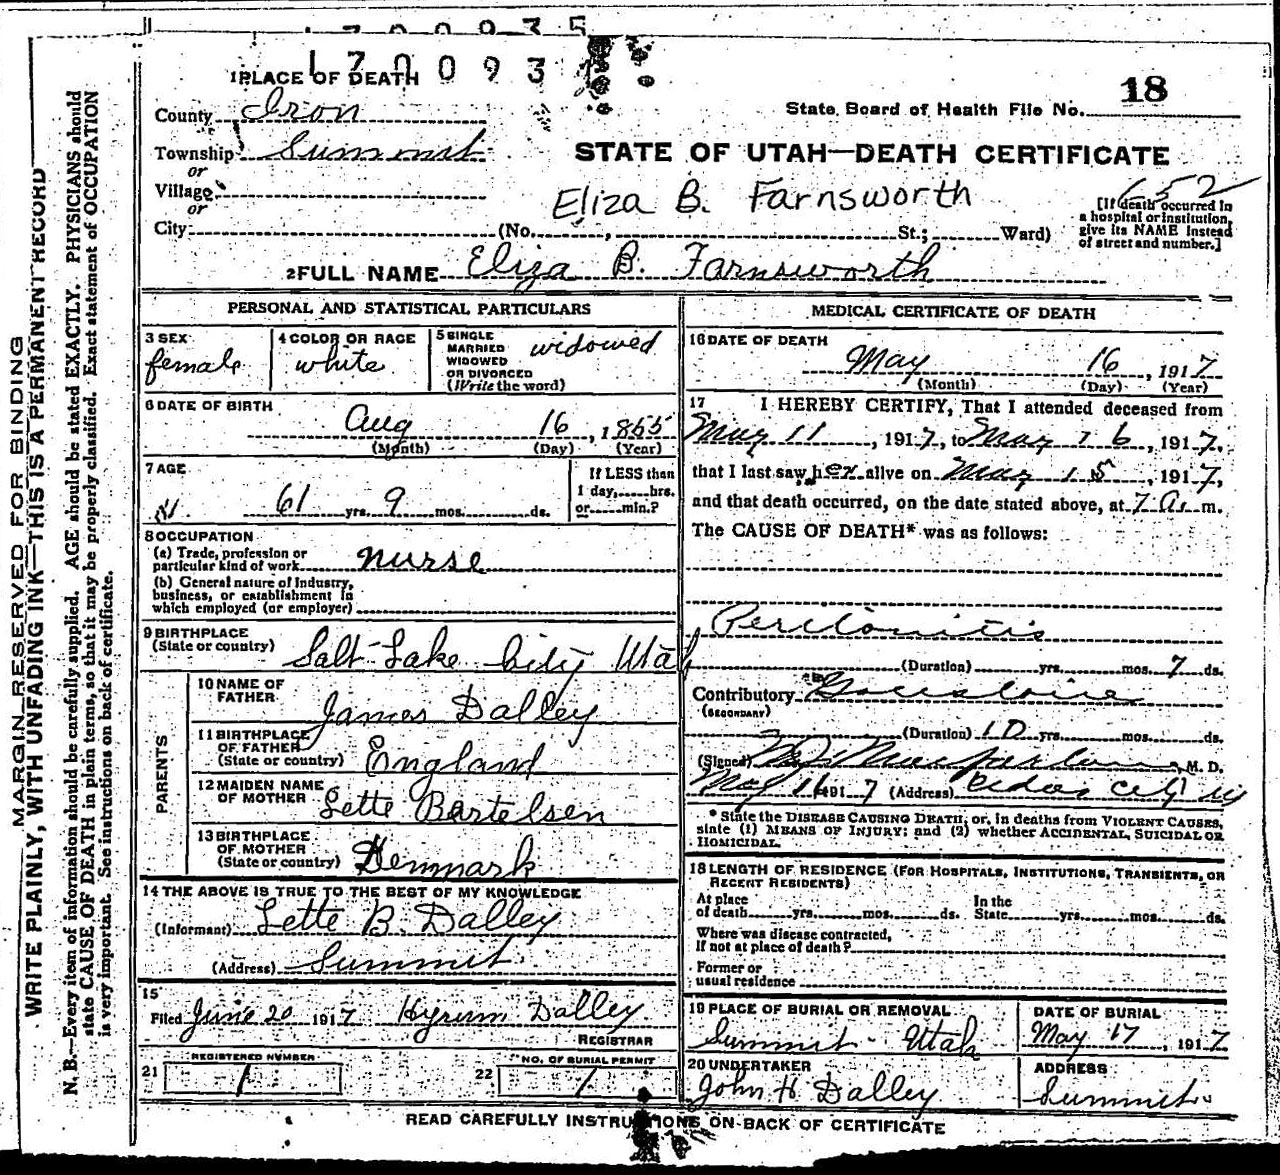 170093
1 PLACE OF DEATH
County Iron
State Board of Health File No. 18
Township Summit
or
STATE OF UTAH—DEATH CERTIFICATE
Village
or
Eliza B. Farnsworth
652
[If death occurred in a hospital or institution, give its NAME instead of street and number.]
City (No. , St.; Ward)
2 FULL NAME Eliza B. Farnsworth
PERSONAL AND STATISTICAL PARTICULARS
3 SEX
female
4 COLOR OR RACE
white
5 SINGLE
MARRIED
WIDOWED
OR DIVORCED
(Write the word)
widowed
6 DATE OF BIRTH
Aug 16, 1855
(Month) (Day) (Year)
7 AGE
61 yrs. 9 mos. ds.
If LESS than
1 day, hrs.
or min.?
8 OCCUPATION
(a) Trade, profession or
particular kind of work nurse
(b) General nature of Industry,
business, or establishment in
which employed (or employer)
9 BIRTHPLACE
(State or country) Salt Lake City Utah
PARENTS
10 NAME OF
FATHER James Dalley
11 BIRTHPLACE
OF FATHER
(State or country) England
12 MAIDEN NAME
OF MOTHER Lette Bartelsen
13 BIRTHPLACE
OF MOTHER
(State or country) Denmark
14 THE ABOVE IS TRUE TO THE BEST OF MY KNOWLEDGE
(Informant) Lette B. Dalley
(Address) Summit
15
Filed June 20 1917 Hyrum Dalley
REGISTRAR
REGISTERED NUMBER
21 1
NO. OF BURIAL PERMIT
22 1
MEDICAL CERTIFICATE OF DEATH
16 DATE OF DEATH
May 16, 1917
(Month) (Day) (Year)
17 I HEREBY CERTIFY, That I attended deceased from
May 11, 1917, to May 16, 1917,
that I last saw her alive on May 15, 1917,
and that death occurred, on the date stated above, at 7 a. m.
The CAUSE OF DEATH* was as follows:
Peritonitis
(Duration) yrs. mos. 7 ds.
Contributory
(SECONDARY)
(Duration) 10 yrs. mos. ds.
(Signed) Macfarlane, M. D.
May 16 1917 (Address) Cedar City
* State the DISEASE CAUSING DEATH, or, in deaths from VIOLENT CAUSES,
state (1) MEANS OF INJURY; and (2) whether ACCIDENTAL, SUICIDAL OR
HOMICIDAL.
18 LENGTH OF RESIDENCE (FOR HOSPITALS, INSTITUTIONS, TRANSIENTS, OR
RECENT RESIDENTS)
At place
of death yrs. mos. ds.
In the
State yrs. mos. ds.
Where was disease contracted,
If not at place of death?
Former or
usual residence
19 PLACE OF BURIAL OR REMOVAL
Summit Utah
DATE OF BURIAL
May 17, 1917
20 UNDERTAKER
John H Dalley
ADDRESS
Summit
READ CAREFULLY INSTRUCTIONS ON BACK OF CERTIFICATE
MARGIN RESERVED FOR BINDING
WRITE PLAINLY, WITH UNFADING INK—THIS IS A PERMANENT RECORD
N. B.—Every item of information should be carefully supplied. AGE should be stated EXACTLY. PHYSICIANS should
state CAUSE OF DEATH in plain terms, so that it may be properly classified. Exact statement of OCCUPATION
is very important. See instructions on back of certificate.